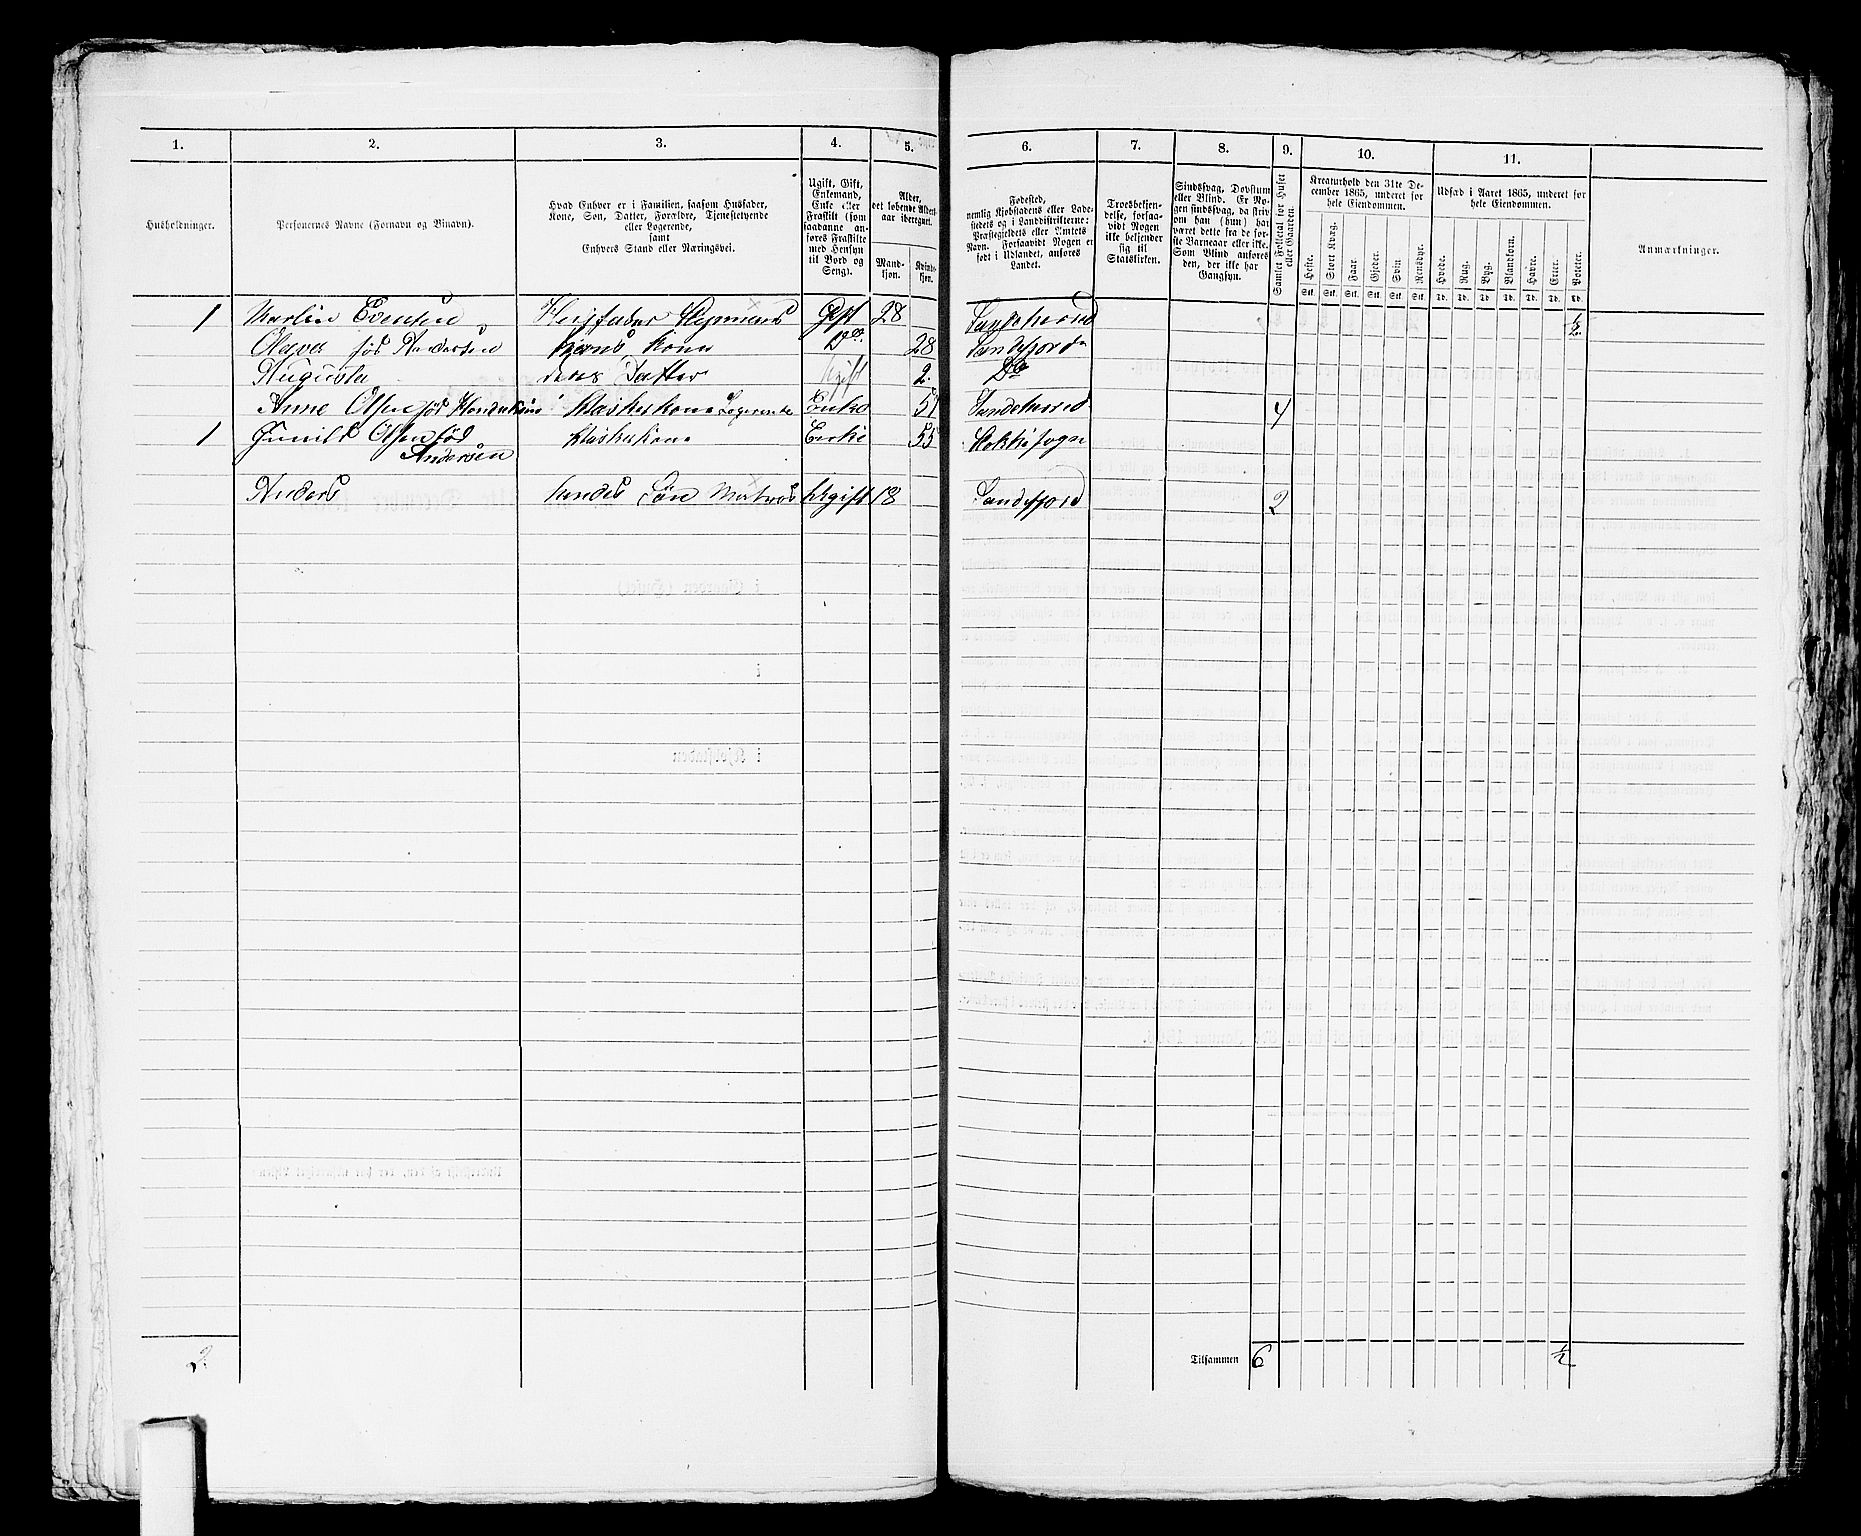 1. 2. 3. 4. 5. 6. 7. 8. 9. 10. 11.
Husholdninger.
Personernes Navne (Fornavn og Binavn).
Hvad Enhver er i Familien, saasom Husfader,
Kone, Søn, Datter, Forældre, Tjenestetyende
eller Logerende,
samt
Enhvers Stand eller Næringsvei.
Ugift, Gift,
Enkemand,
Enke eller
Fraskilt (som
saadanne an-
føres Fraskilte
med Hensyn
til Bord og
Seng).
Alder,
det løbende Alders-
aar iberegnet.
Mand-
kjøn.
Kvinde-
kjøn.
Fødested,
nemlig Kjøbstadens eller Lade-
stedets og i Landdistrikterne:
Præstegjeldets eller Amtets
Navn. Forsaavidt Nogen er
født i Udlandet, anføres
Landet.
Troesbekjen-
delse, forsaa-
vidt Nogen
ikke bekjender
sig til
Statskirken.
Sindssvag, Døvstum
eller Blind. Er No-
gen sindssvag, da skriv
om han (hun) har
været dette fra de før-
ste Barneaar eller ikke.
Som Blind anføres
den, der ikke har
Gangsyn.
Samlet Folketal for Huset
eller Gaarden.
Kreaturhold den 31te De-
cember 1865, underet for
hele Eiendommen.
Heste. Stort Kvæg. Faar. Gjeder. Svin. Rensdyr.
Stk. Stk. Stk. Stk. Stk. Stk.
Udsæd i Aaret 1865, underet for
hele Eiendommen.
Hvede. Rug. Byg. Blandkorn. Havre. Erter. Poteter.
Td. Td. Td. Td. Td. Td. Td.
Anmærkninger.
1 Martin Evensen Husfader Gift 28 Sandeherred 1/2
Olava fød Andersen hans Kone Do 28 Sandefjord
Augusta deres Datter Ugift 2. Do
Anne Olsen fød Vaskerkone Logerende Enke 51 Sandeherred 4
1 Gunild Olsen fød Vaskerkone Enke 55
Andersen
Anders hendes Søn Matros Ugift 18 Sandefjord 2
2. Tilsammen 6 1/2